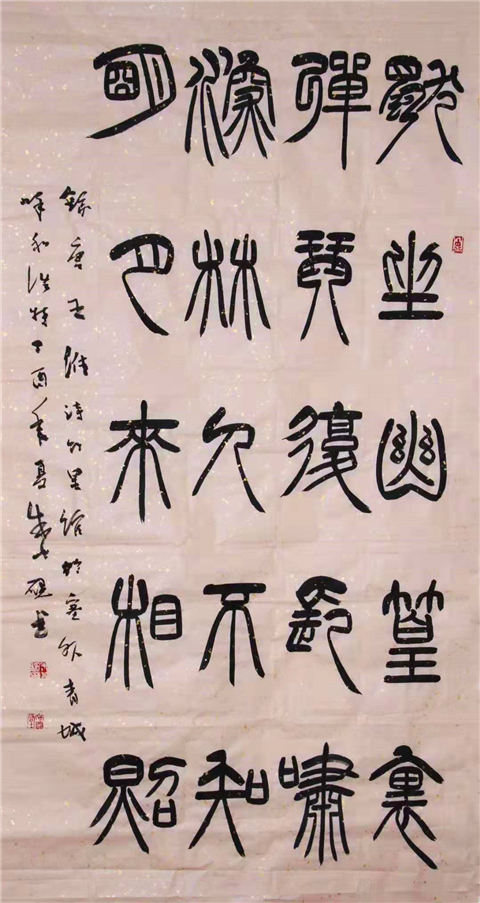 獨坐幽篁裏
彈琴復長嘯
深林人不知
明月來相照
錄唐王維詩竹里館於塞外青城
呼和浩特丁酉年夏